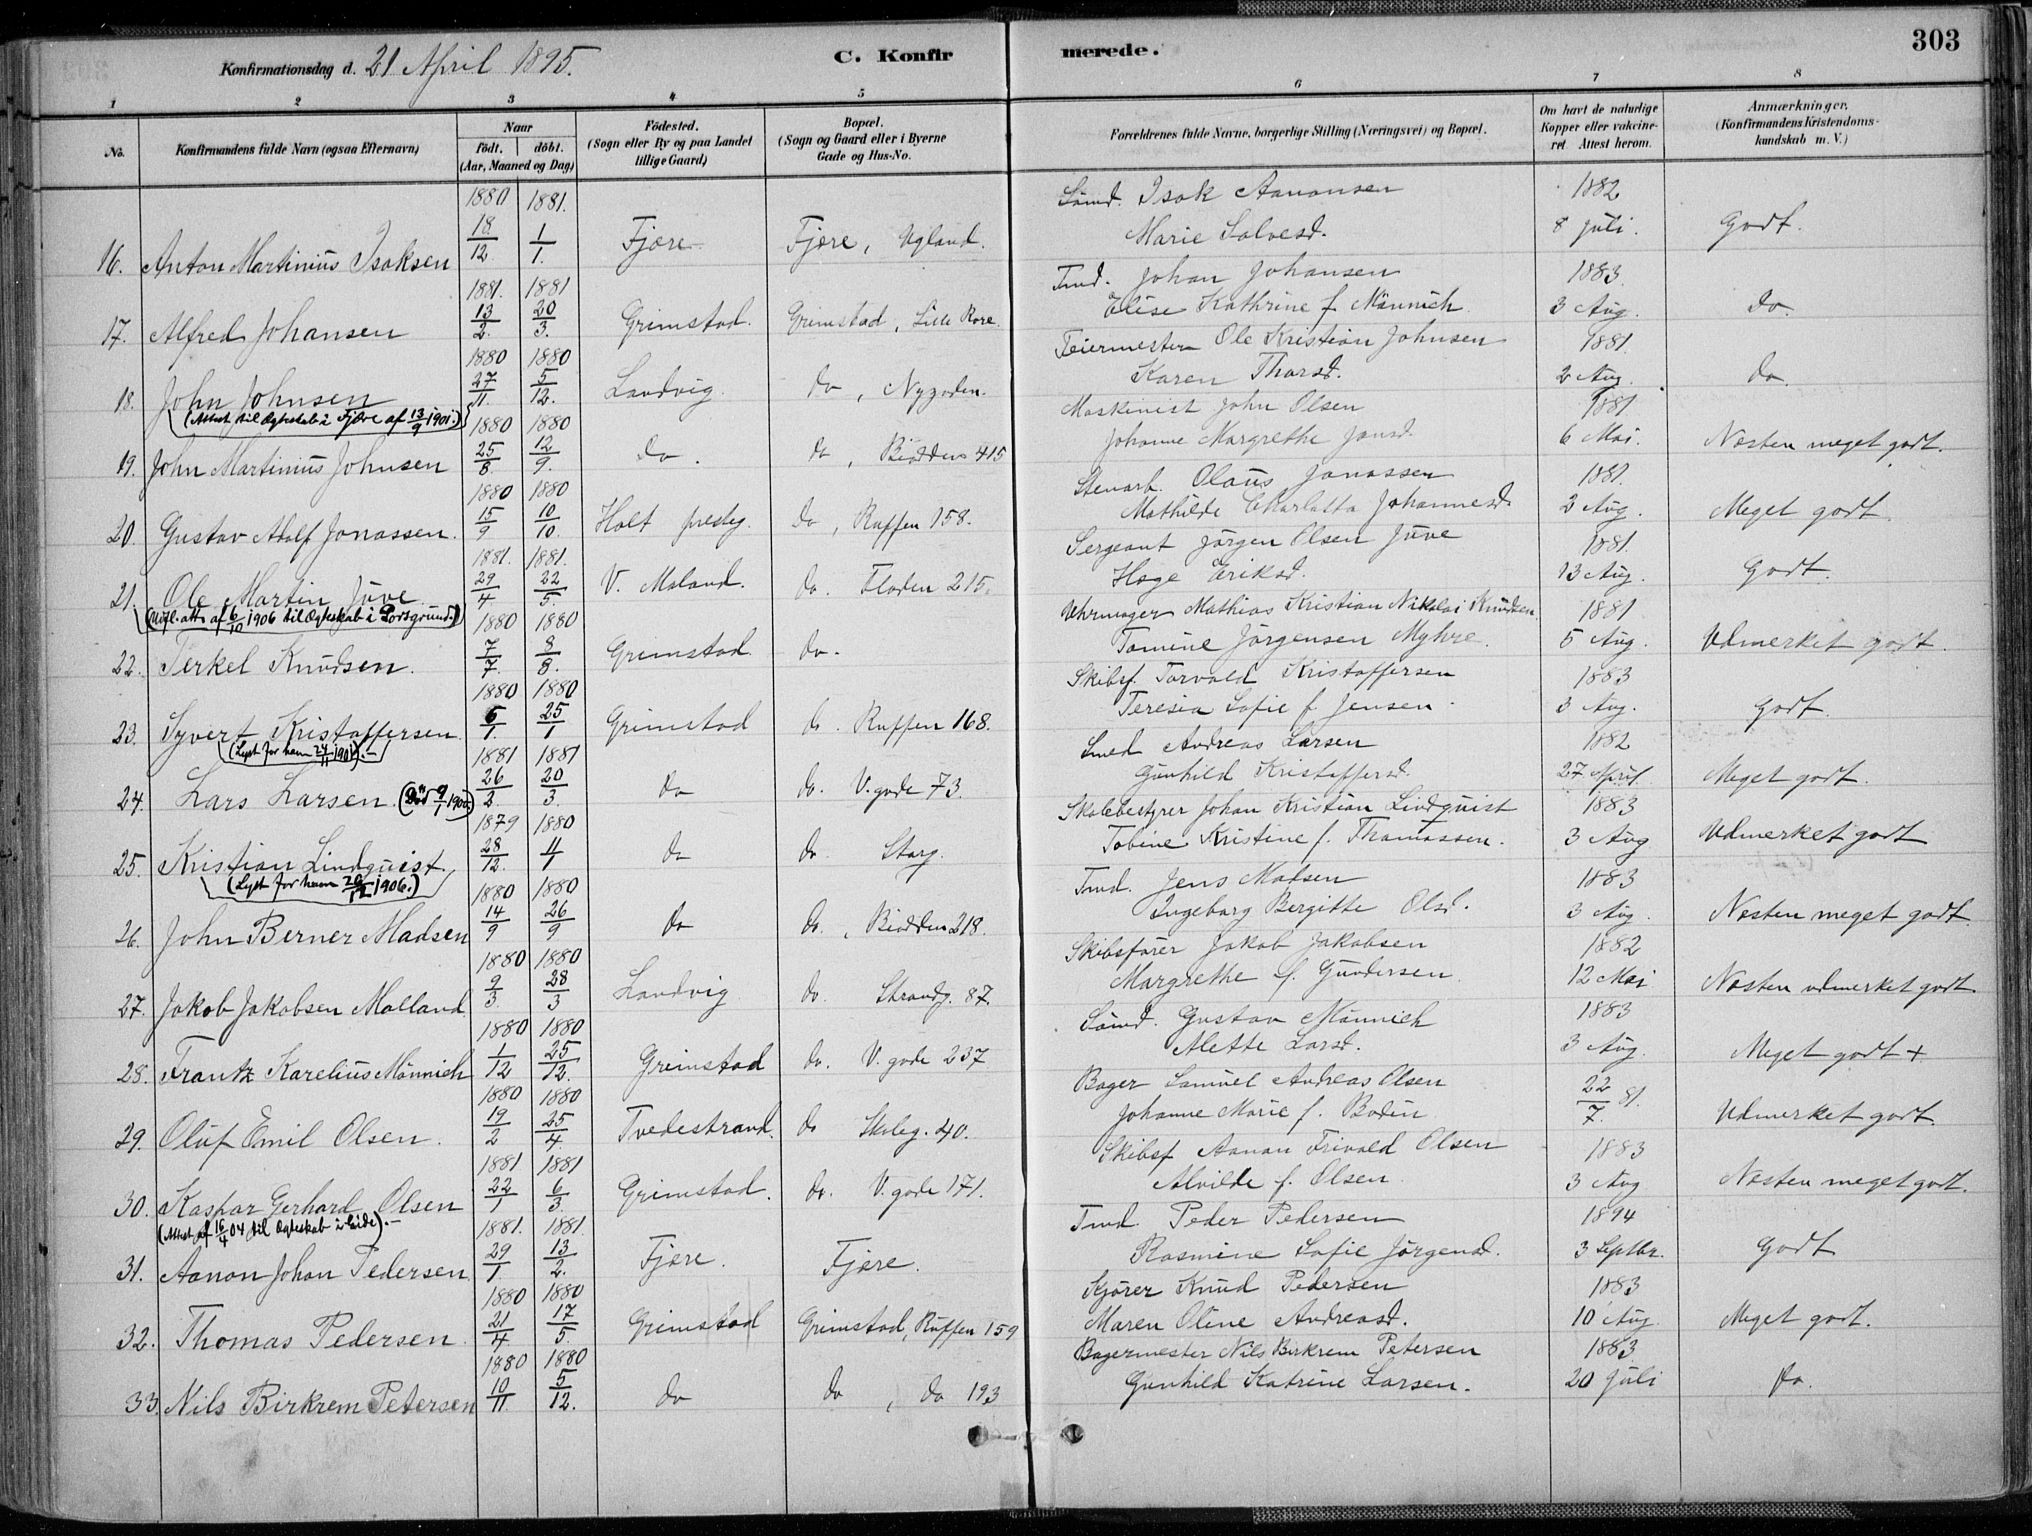 303
Konfirmationsdag d. 21 April 1895.
C. Konfirmerede.
1 2 3 4 5 6 7 8
No.
Konfirmandens fulde Navn (ogsaa Efternavn)
Naar født. døbt. (Aar, Maaned og Dag)
Fødested. (Sogn eller By og paa Landet tillige Gaard)
Bopæl. (Sogn og Gaard eller i Byerne Gade og Hus-No.
Forældrenes fulde Navne, borgerlige Stilling (Næringsvei) og Bopæl.
Om havt de naturlige Kopper eller vakcineret. Attest herom.
Anmærkninger. (Konfirmandens Kristendomskundskab m. V.)
1880 1881. Sømd. Isak Aanonsen 1882
16. Anton Martinius Isaksen 18/12 1/1. Fjære Fjære, Ugland. Marie Salvesd. 8 Juli. Godt.
1881. 1881 Tmd. Johan Johansen 1883
17. Alfred Johansen 13/2. 20/3. Grimstad. Grimstad, Lille Rore. Elise Kathrine f. Mønnich 3 Aug. do.
1880 1880 Feiermester Ole Kristian Johnsen 1881.
18. John Johnsen 27/11. 5/12. Landvig. do, Nygaden. Karen Thorsd. 2 Aug. do.
(Attest til Ægteskab i Fjære af 13/9 1901.)
1880 1880 Maskinist John Olsen 1881
19. John Martinius Johnsen 25/8. 12/9. do. do, Biodden 415 Johanne Margrethe Jonsd. 6 Mai. Næsten meget godt.
1880 1880 Stenarb. Olaus Jonassen 1881.
20. Gustav Adolf Jonassen. 15/9 10/10. Holt prestg. do, Raffen 158. Mathilde Charlotta Johannesd. 2 Aug. Meget godt.
1881. 1881. Sergeant Jørgen Olsen Juve 1881.
21. Ole Martin Juve 29/4 22/5. V. Moland. do. Floden 215. Hage Eriksd. 13 Aug. Godt.
(Udfl. att. af 6/10 1906 til Ægteskab i Porsgrund.)
1880 1880 Uhrmager Mathias Kristian Nikolai Knudsen 1881
22. Terkel Knudsen. 7/7. 8/8. Grimstad. do. Tomine Jørgensen Myhre. 5 Aug. Udmerket godt.
1880 1880 Skibsf. Torvald Kristoffersen 1883
23. Syvert Kristoffersen 6/1. 25/1 Grimstad do. Raffen 168. Teresia Sofie f. Jensen. 3 Aug. Godt.
(Lyst for ham 24/11 1901). -
1881 1881 Smed Andreas Larsen 1882
24. Lars Larsen. (Død 9/1 1900.) 26/2. 20/3. do do. V. gade 73. Gunhild Kristoffersd. 27 April. Meget godt.
1879 1880 Skolebestyrer Johan Kristian Lindquist 1883
25. Kristian Lindquist. 28/12. 11/1 do do. Storg. Tobine Kristine f. Thomassen. 3 Aug Udmerket godt
(Lyst for ham 26/12 1906.)
1880 1880 Tmd. Jens Madsen 1883
26. John Berner Madsen 14/9 26/9 do do., Biodden 218. Ingeborg Bergitte Olsd. 3 Aug. Næsten meget godt.
1880 1880 Skibsfører Jakob Jakobsen 1882
27. Jakob Jakobsen Molland 9/3. 28/3 Landvig do. Strandg. 87. Margrethe f. Gundersen 12 Mai Næsten udmerket godt.
1880 1880 Sømd. Gustav Mønnich 1883
28. Frantz Karelius Mønnich 1/12 25/12. Grimstad do. V. gade 237 Alette Larsd. 3 Aug. Meget godt +
1880 1880 Bager Samuel Andreas Olsen
29. Oluf Emil Olsen. 19/2 25/4 Tvedestrand. do Skoleg. 40. Johanne Marie f. Bodin 22/7. 81. Udmerket godt.
1881. 1881 Skibsf Aanon Trivold Olsen 1883
30. Kaspar Gerhard Olsen 22/1 6/3. Grimstad. do. V. gade 171. Alvilde f. Olsen. 3 Aug Næsten meget godt.
(Attest af 16/4 04 til Ægteskab i Eide). -
1881. 1881. Tmd. Peder Pedersen 1894
31. Aanon Johan Pedersen 29/1. 13/2. Fjære. Fjære. Rasmine Sofie Jørgensd. 3 Septbr. Godt
1880 1880 Kjører Knud Pedersen 1883
32. Thomas Pedersen 21/4. 17/5. Grimstad Grimstad, Raffen 159 Maren Oline Andreasd. 10 Aug. Meget godt.
1880 1880 Bagermester Nils Birkrem Petersen 1883
33. Nils Birkrem Petersen 10/11. 5/12. do do, do 193 Gunhild Katrine Larsen. 20 Juli Do.